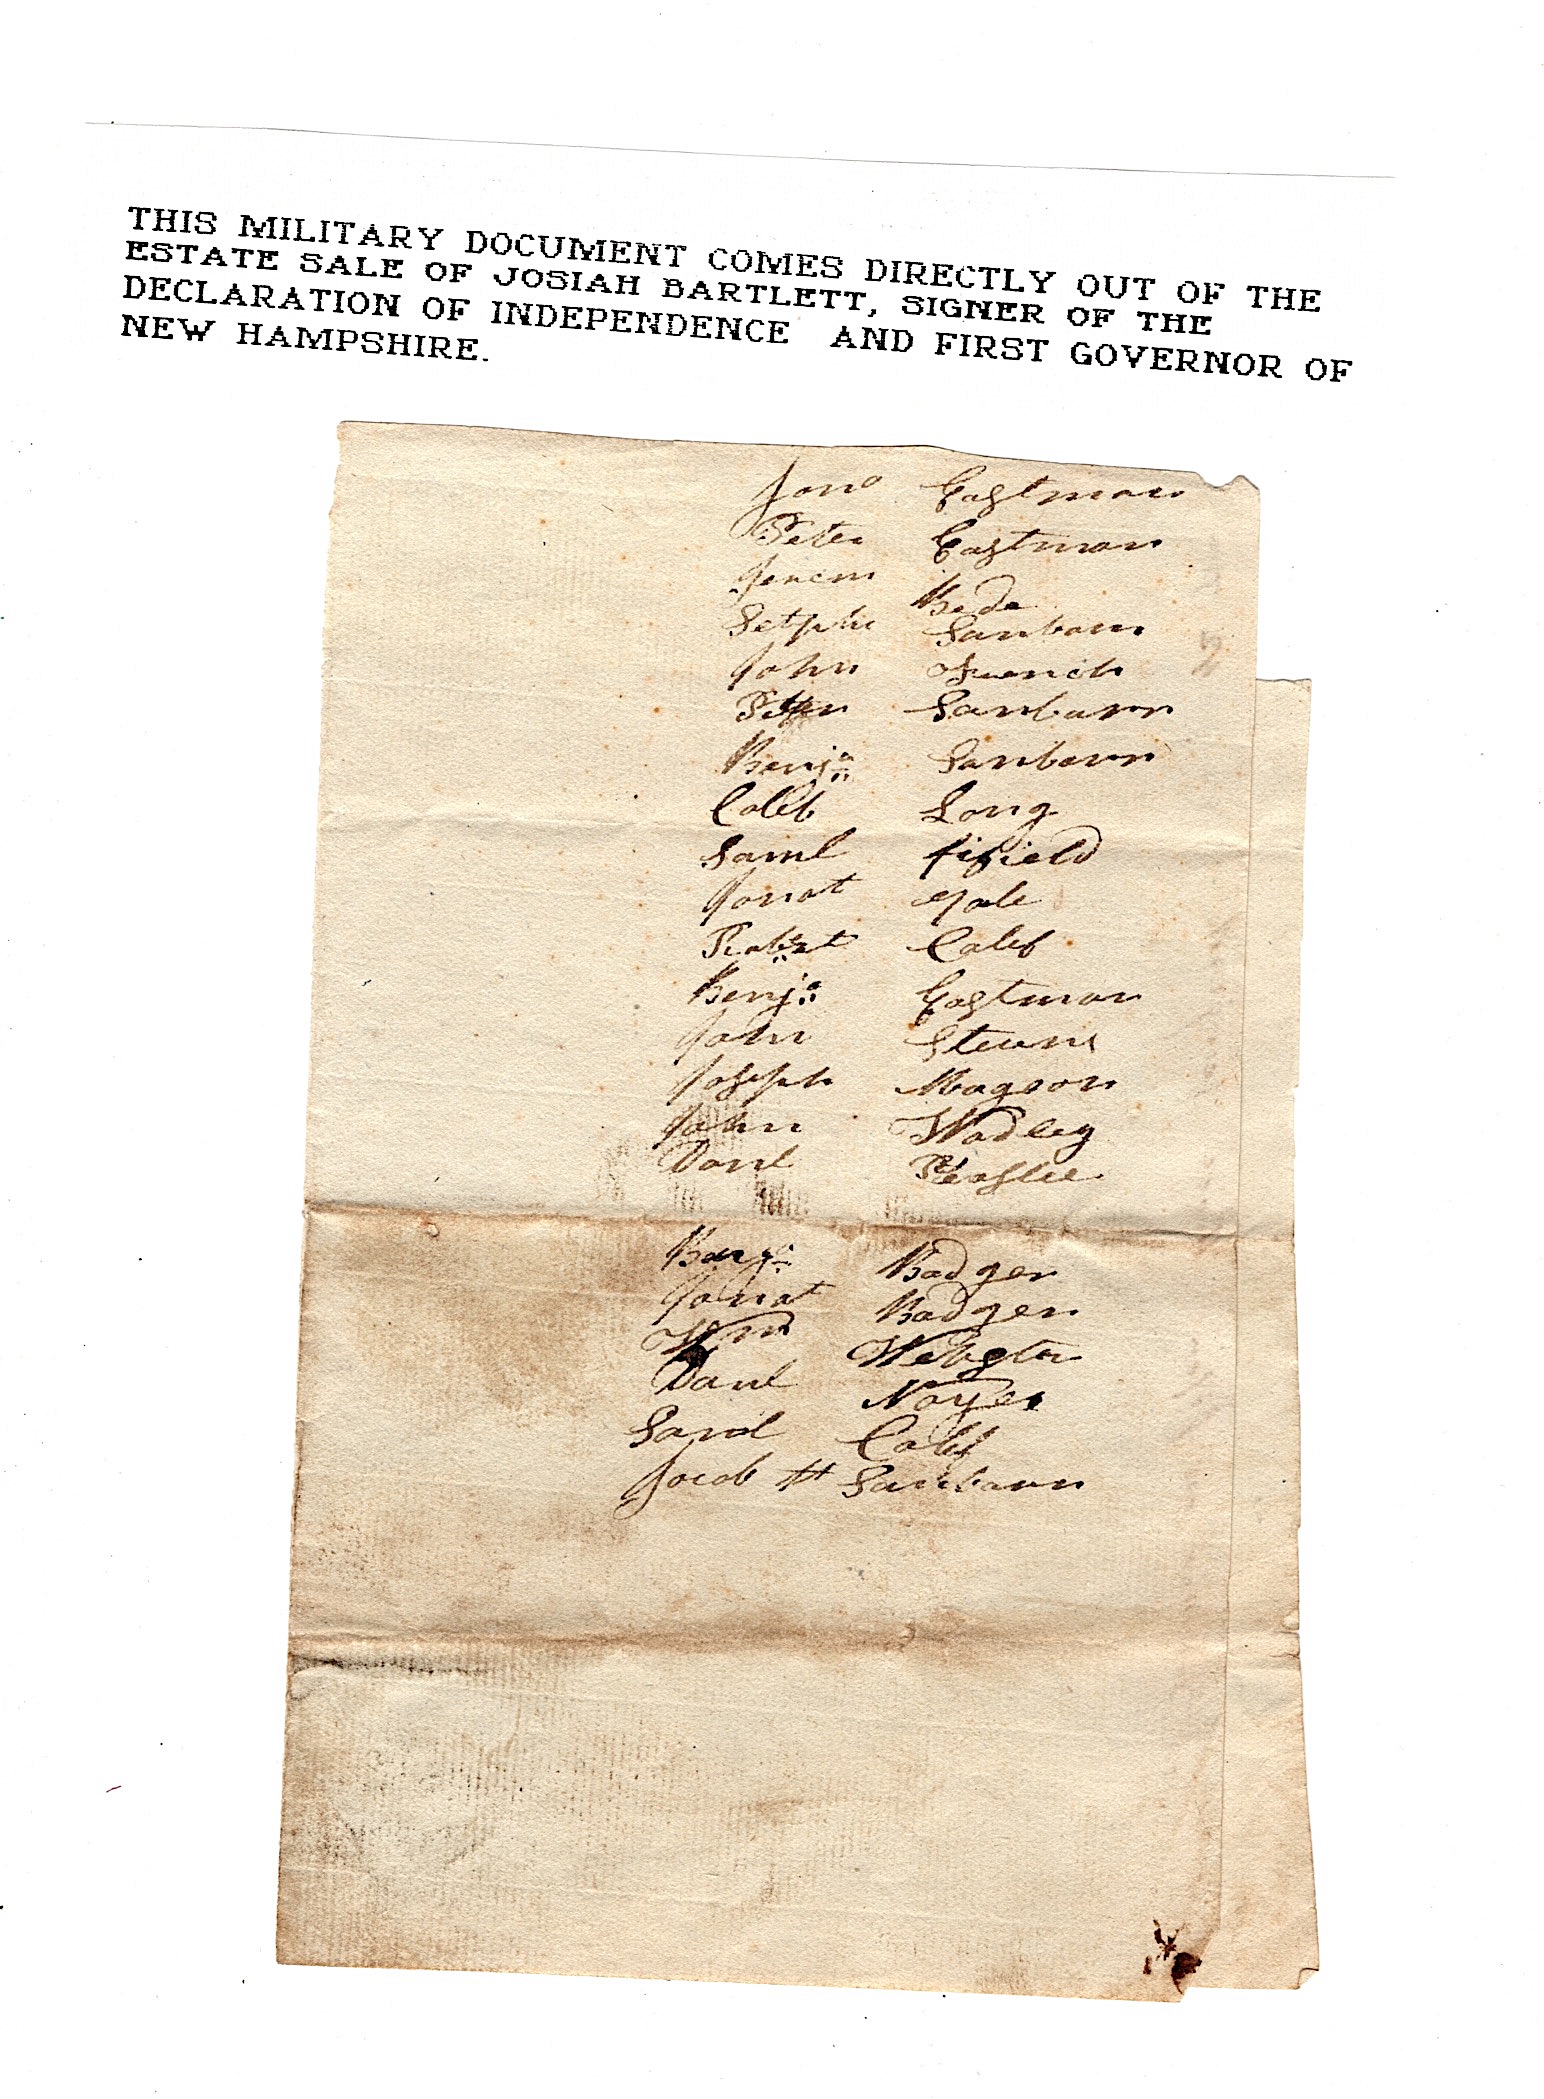 THIS MILITARY DOCUMENT COMES DIRECTLY OUT OF THE
ESTATE SALE OF JOSIAH BARTLETT, SIGNER OF THE
DECLARATION OF INDEPENDENCE AND FIRST GOVERNOR OF
NEW HAMPSHIRE.
Jona Eastman
Peter Eastman
Jerem Bede
Setphn Sanborn
John French
Peter Sanburn
Benja Sanborn
Caleb Long
Saml fifield
Jonat Gale
Robert Calef
Benja Eastman
John Steuens
Joseph Magoon
John Hadley
Danl Peaslee
Benja Badger
Jonat Badger
Wm Webster
Danl Noyes
Saml Calef
Jacob H Sanborn